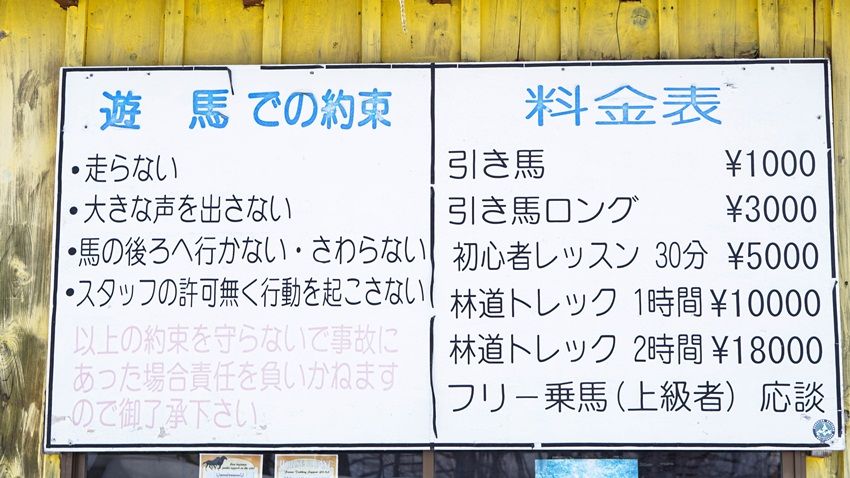 遊 馬での約束
・走らない
・大きな声を出さない
・馬の後ろへ行かない・さわらない
・スタッフの許可無く行動を起こさない
以上の約束を守らないで事故に
あった場合責任を負いかねます
ので御了承下さい
料金表
引き馬 ¥1000
引き馬ロング ¥3000
初心者レッスン 30分 ¥5000
林道トレック 1時間 ¥10000
林道トレック 2時間 ¥18000
フリー乗馬(上級者) 応談